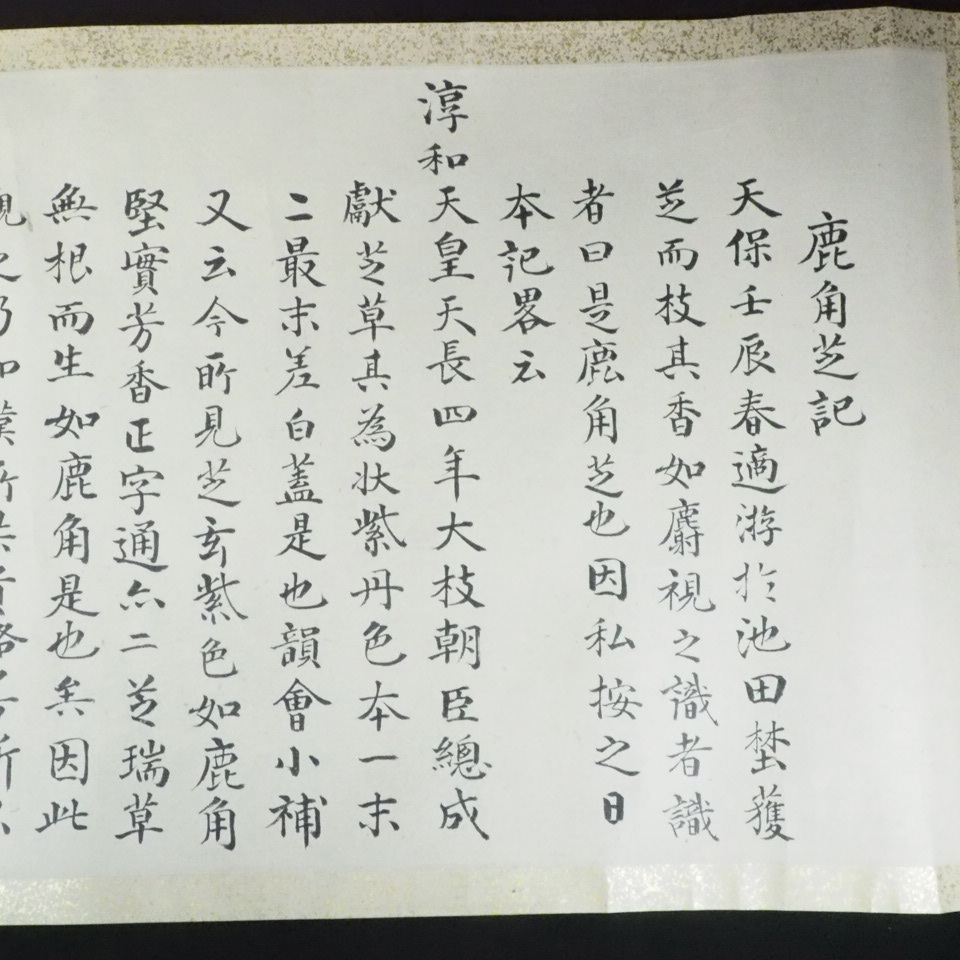 鹿角芝記
天保壬辰春適游於池田埜獲
芝而枝其香如麝視之識者識
者曰是鹿角芝也因私按之日
本記畧云
淳和天皇天長四年大枝朝臣總成
獻芝草其為状紫丹色本一末
二最末差白蓋是也韻會小補
又云今所見芝玄紫色如鹿角
堅實芳香正字通亦二芝瑞草
無根而生如鹿角是也矣因此